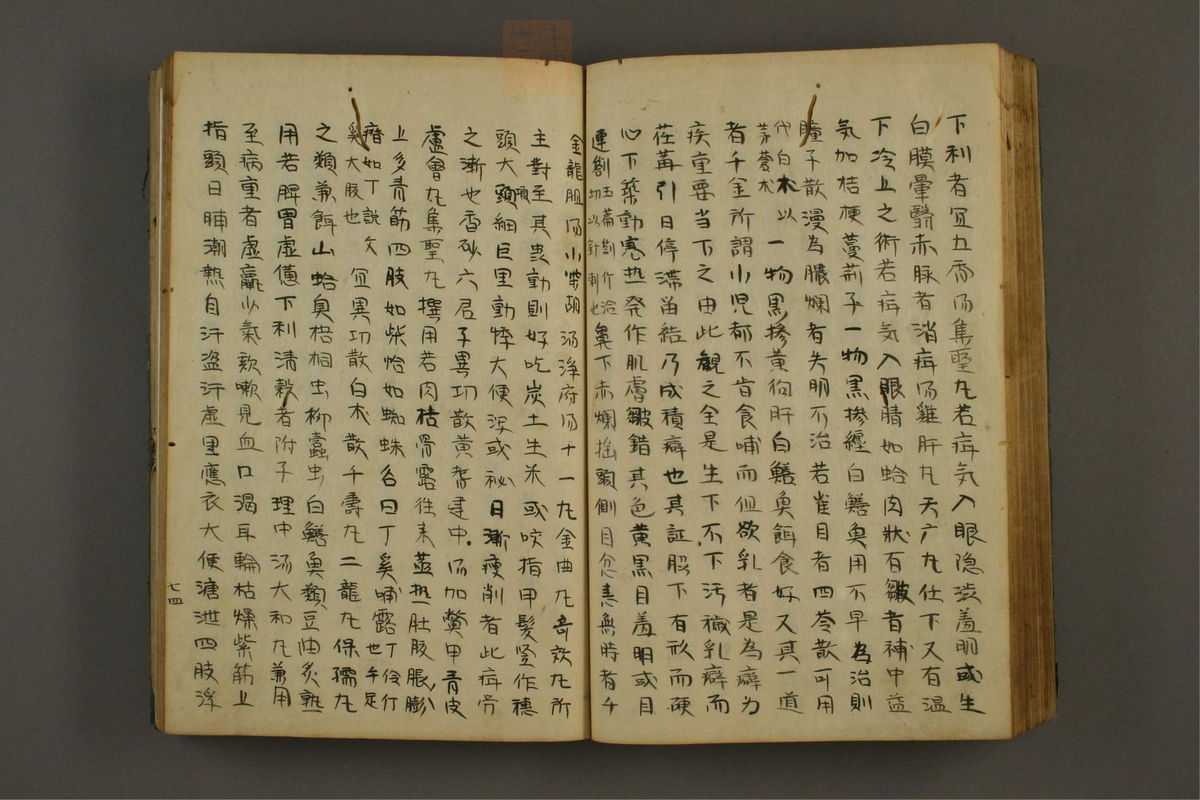 下利者宜五香湯集聖丸若疳気入眼隠渋羞明或生
白膜暈翳赤脉者消疳湯雞肝丸天疒丸仕下又有温
下冷上之術若疳気入眼睛如蛤肉狀有皺者補中益
気加桔梗蔓荊子一物黒摻纏白鱔魚用不早為治則
瞳子散漫為膿爛者失明不治若雀目者四苓散可用
代白朮以蒼朮一物黒摻黄狗肝白鱔魚餌食好又其一道
者千金所謂小児都不肯食哺而但欲乳者是為癖為
疾重要当下之由此觀之全是生下不下汚穢乳癖而
荏苒引日停滞畄結乃成積癖也其証臍下有形而硬
心下築動寒热発作肌膚皺錯其色黄黒目羞明或目
連劄玉篇劄竹洽切以針刺也鼻下赤爛揺頭側目忿恚無時者千
金龍胆湯小柴胡湯浄府湯十一丸金曲丸奇效丸所
主對至其虫動則好吃炭土生米或咬指甲髪竪作穗
頭大頸細巨里動悸大便渋或秘日漸痩削者此疳労
之漸也香砂六君子異功散黄耆建中湯加鱉甲青皮
盧會丸集聖丸撰用若肉枯骨露往来蒸热肚脹脹膨
上多青筋四肢如柴恰如蜘蛛名曰丁奚哺露丁伶仃也手足
瘠如丁説文奚大腹也宜異功散白朮散千壽丸二龍丸保孺丸
之類兼餌山蛤臭梧桐虫柳蠹虫白鱔魚類豆油炙熟
用若脾胃虚憊下利清穀者附子理中湯大和丸兼用
至病重者虚羸少氣欬嗽見血口渇耳輪枯燥紫筋上
指頭日晡潮熱自汗盗汗虚里應衣大便溏泄四肢浮
七四